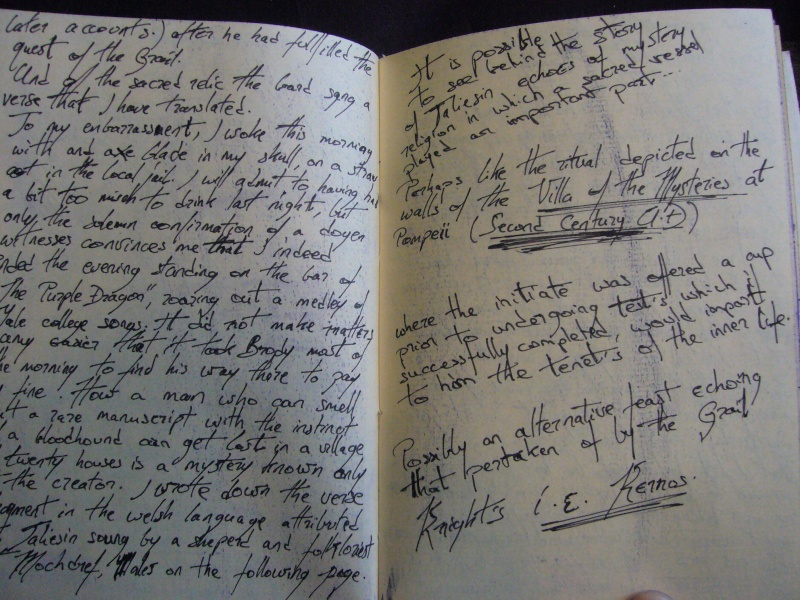 later accounts.) after he had fullfilled the
quest of the Grail.
And of the sacred relic the bard sang a
verse that I have translated.
To my embarrassment, I woke this morning
with and axe blade in my skull, on a straw
cot in the local jail. I will admit to having had
a bit too much to drink last night, but
only the solemn confirmation of a dozen
witnesses convinces me that I indeed
ended the evening standing on the bar of
"The Purple Dragon", roaring out a medley of
Yale college songs. It did not make matters
any easier that it took Brody most of
the morning to find his way there to pay
fine. How a man who can smell
out a rare manuscript with the instinct
a bloodhound can get lost in a village
twenty houses is a mystery known only
the creator. I wrote down the verse
fragment in the welsh language attributed
Taliesin sung by a sheperd and folklorist
Mochdref, Wales on the following page.
It is possible
to see behind the story
of Taliesin echoes of mystery
religion in which a sacred vessel
played an important part...
Perhaps like the ritual depicted on the
walls of the Villa of the Mysteries at
Pompeii (Second Century A.D)
where the initiate was offered a cup
prior to undergoing test's, which if
successfully completed, would import
to him the tenet's of the inner life.
Possibly an alternative feast echoing
that pertaken of by the Grail
Knight's i.e. Kernos.